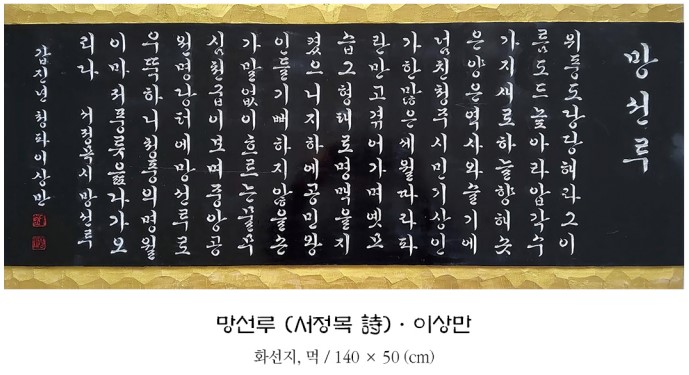 망선루
위풍도당당해라그이
름도드높아라압각수
가지새로하늘향해솟
은양은역사와슬기에
넘친청주시민기상인
가한많은세월따라파
란만고겪어가며옛모
습그형태로명맥을지
켰으니지하에공민왕
인들기뻐하지않을손
가말없이흐르는
심천굽이보며중앙공
원명당터에망선루로
우뚝하니청풍의명월
이마저
리라 서정목시 망선루
갑진년 청파이상만
망선루 (서정목 詩) · 이상만
화선지, 먹 / 140 × 50 (cm)